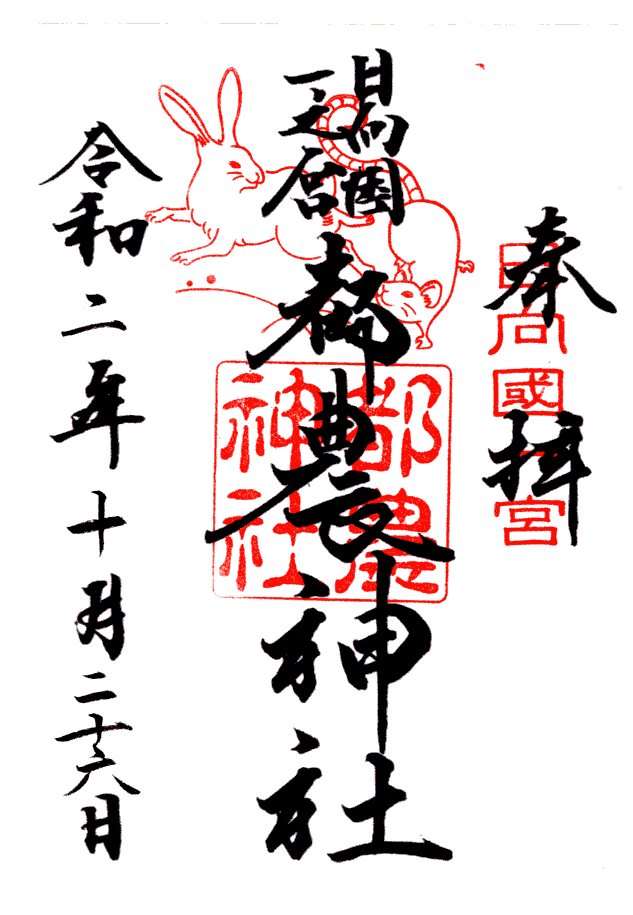 奉拝
日向國一宮
日向國
一之宮
都農神社
都農
神社
令和二年十月二十六日